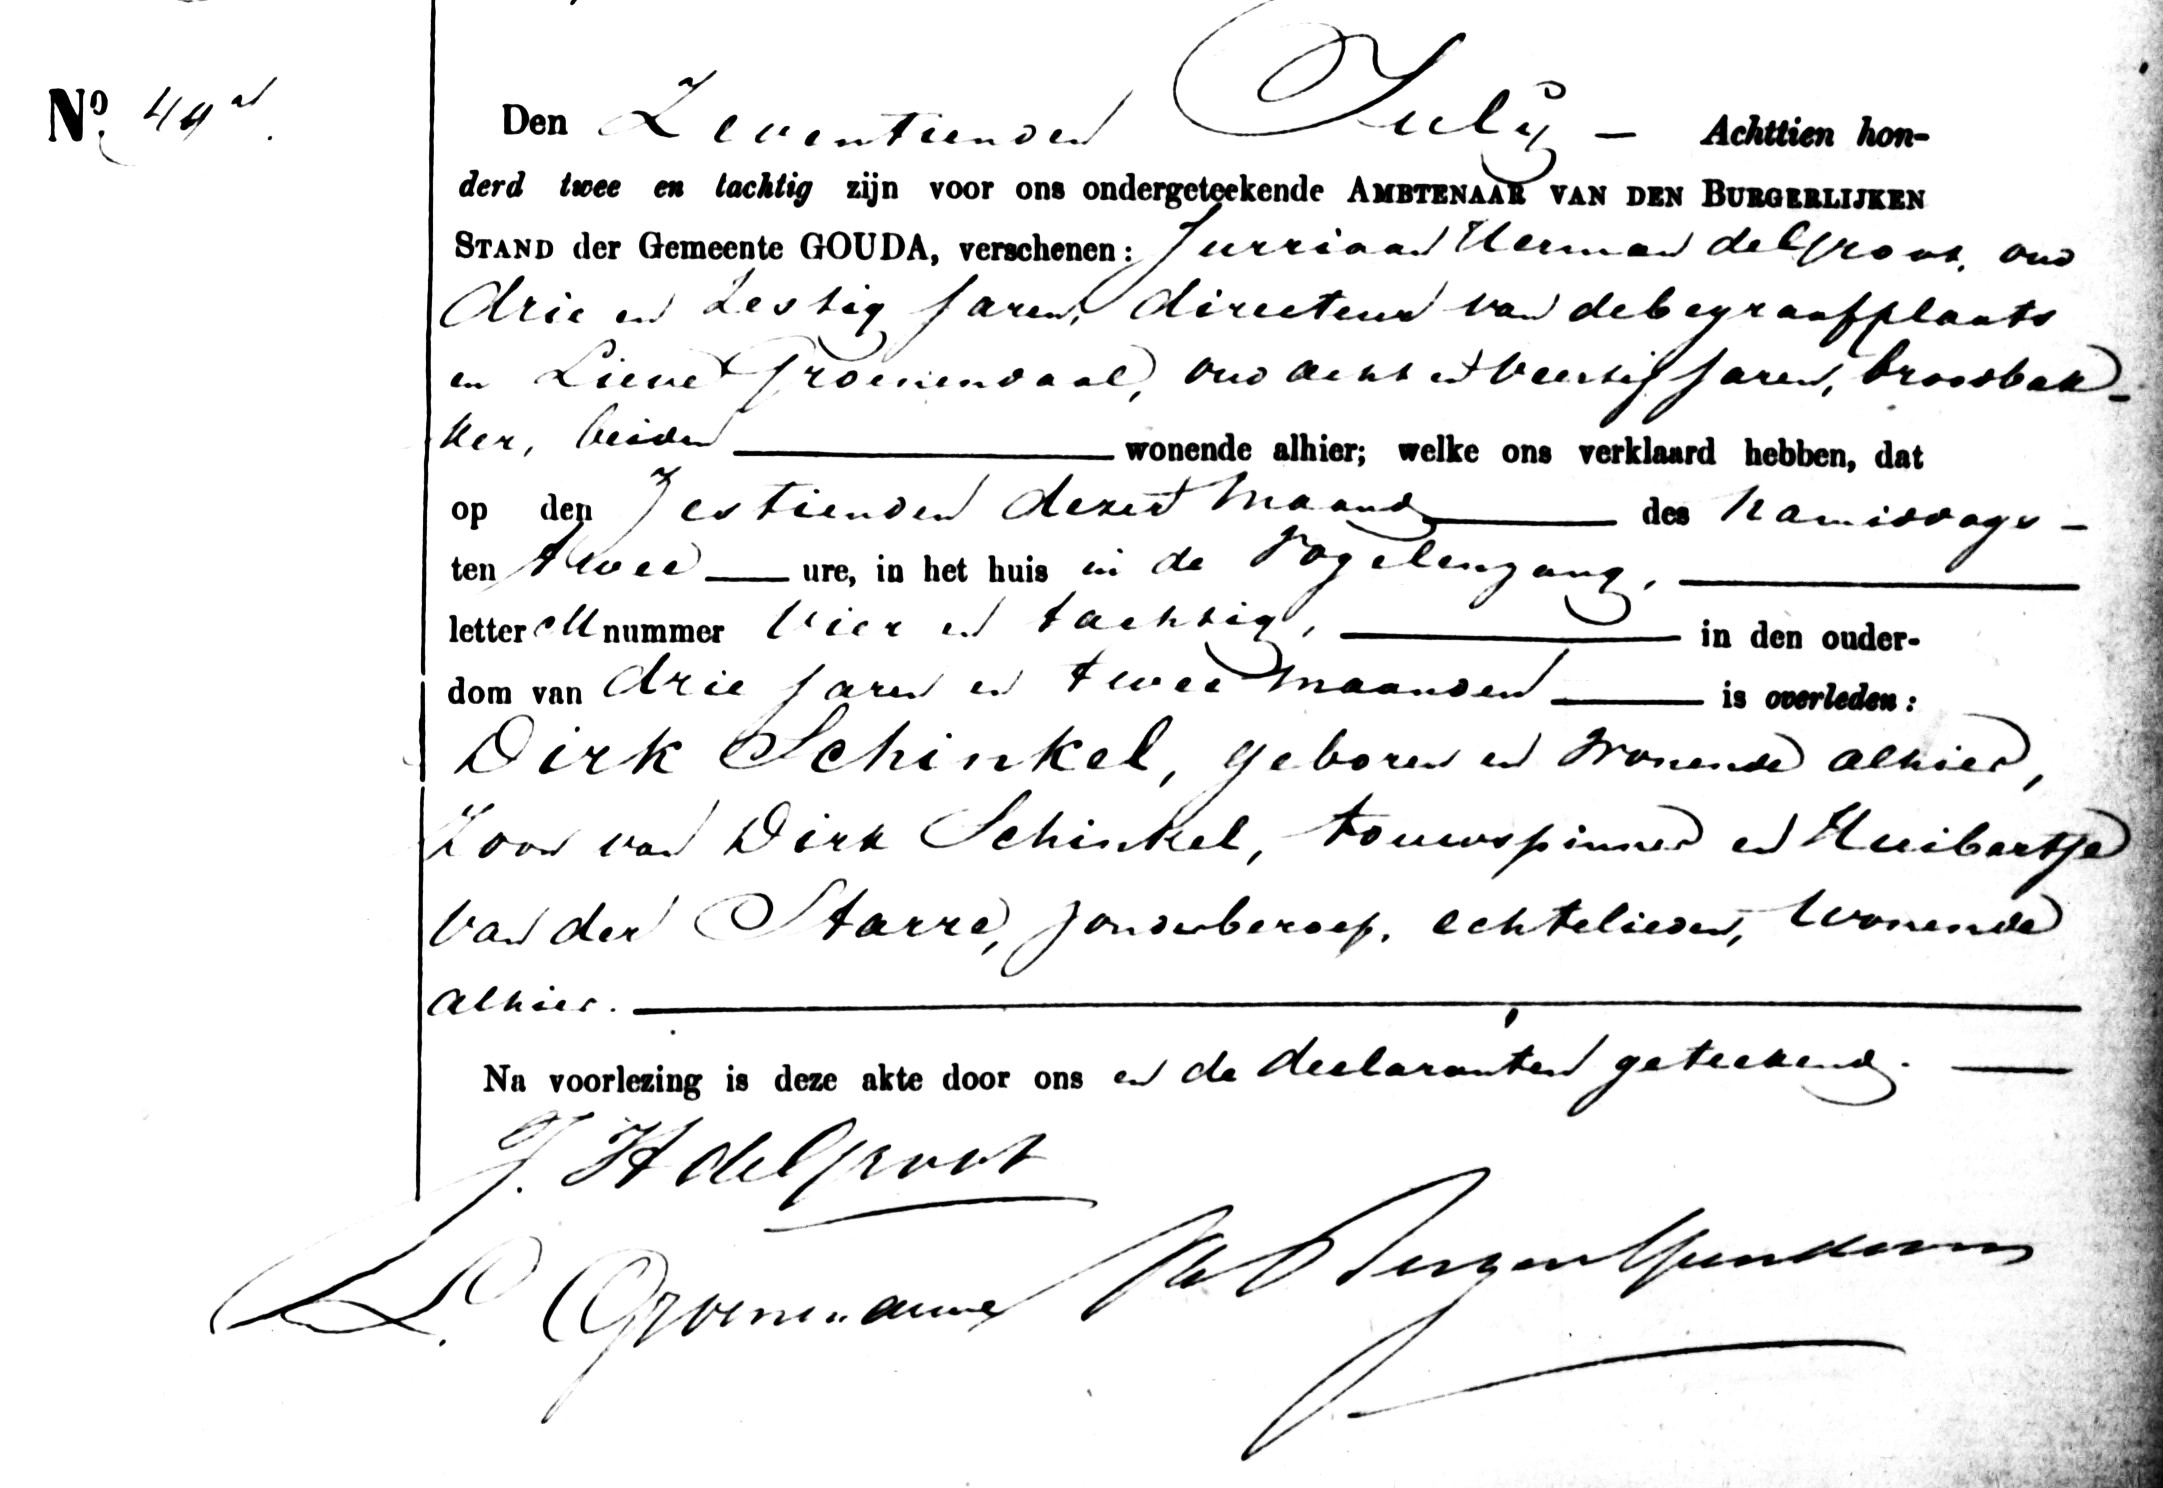 No. 44
Den Zeventienden July – Achttien hon-
derd twee en tachtig zijn voor ons ondergeteekende AMBTENAAR VAN DEN BURGERLIJKEN
STAND der Gemeente GOUDA, verschenen: Jurriaan Herman de Groot, oud
drie en Zestig Jaren, directeur van de begraafplaats
en Lieve Groenendaal, oud acht en veertig Jaren, broodbak-
ker, beiden wonende alhier; welke ons verklaard hebben, dat
op den Zestienden dezer Maand des Namiddags –
ten twee ure, in het huis in de Vogelenzang,
letter M nummer Vier en tachtig, in den ouder-
dom van drie Jaren en twee Maanden is overleden:
Dirk Schinkel, geboren en wonende alhier,
Zoon van Dirk Schinkel, touwspinner en Huibertje
van der Starre, zonder beroep, echtelieden, wonende
alhier.
Na voorlezing is deze akte door ons en de declaranten geteekend.
J. H de Groot
L. Groenendaal